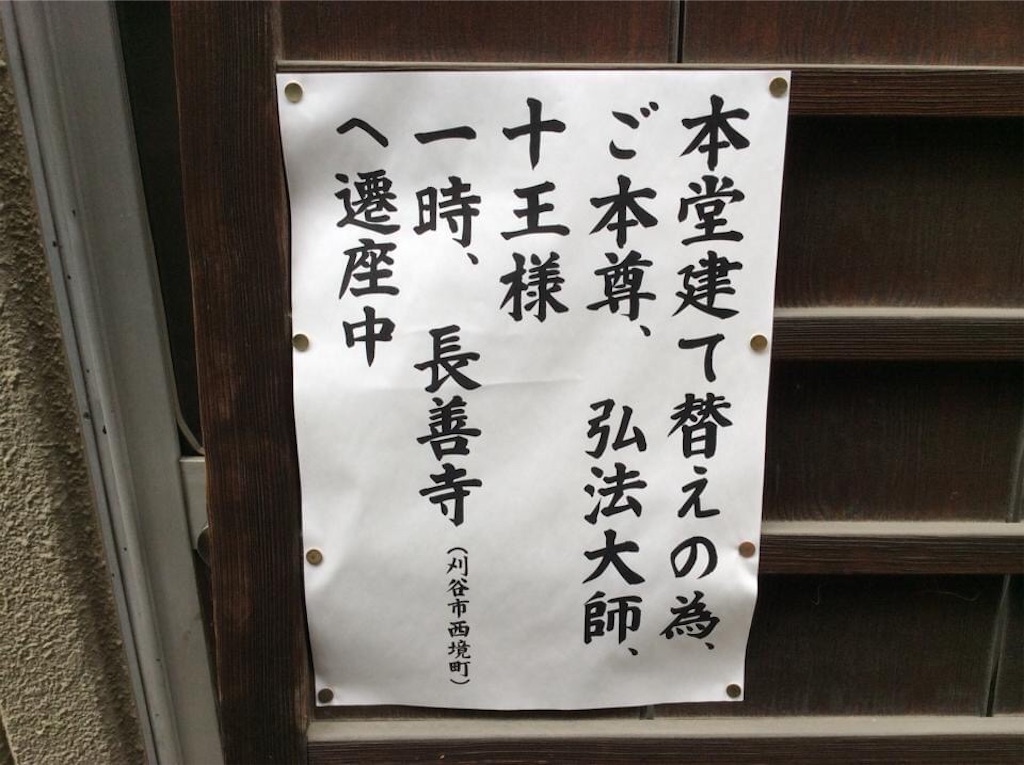 本堂建て替えの為、
ご本尊、弘法大師、
十王様
一時、長善寺（刈谷市西境町）
へ遷座中